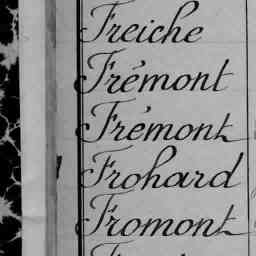 Freiche
Frémont
Frémont
Frohard
Fromont